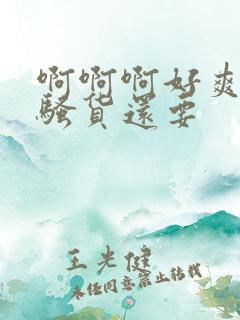 啊啊啊好爽
骚货还要
王光健
未经同意禁止转载